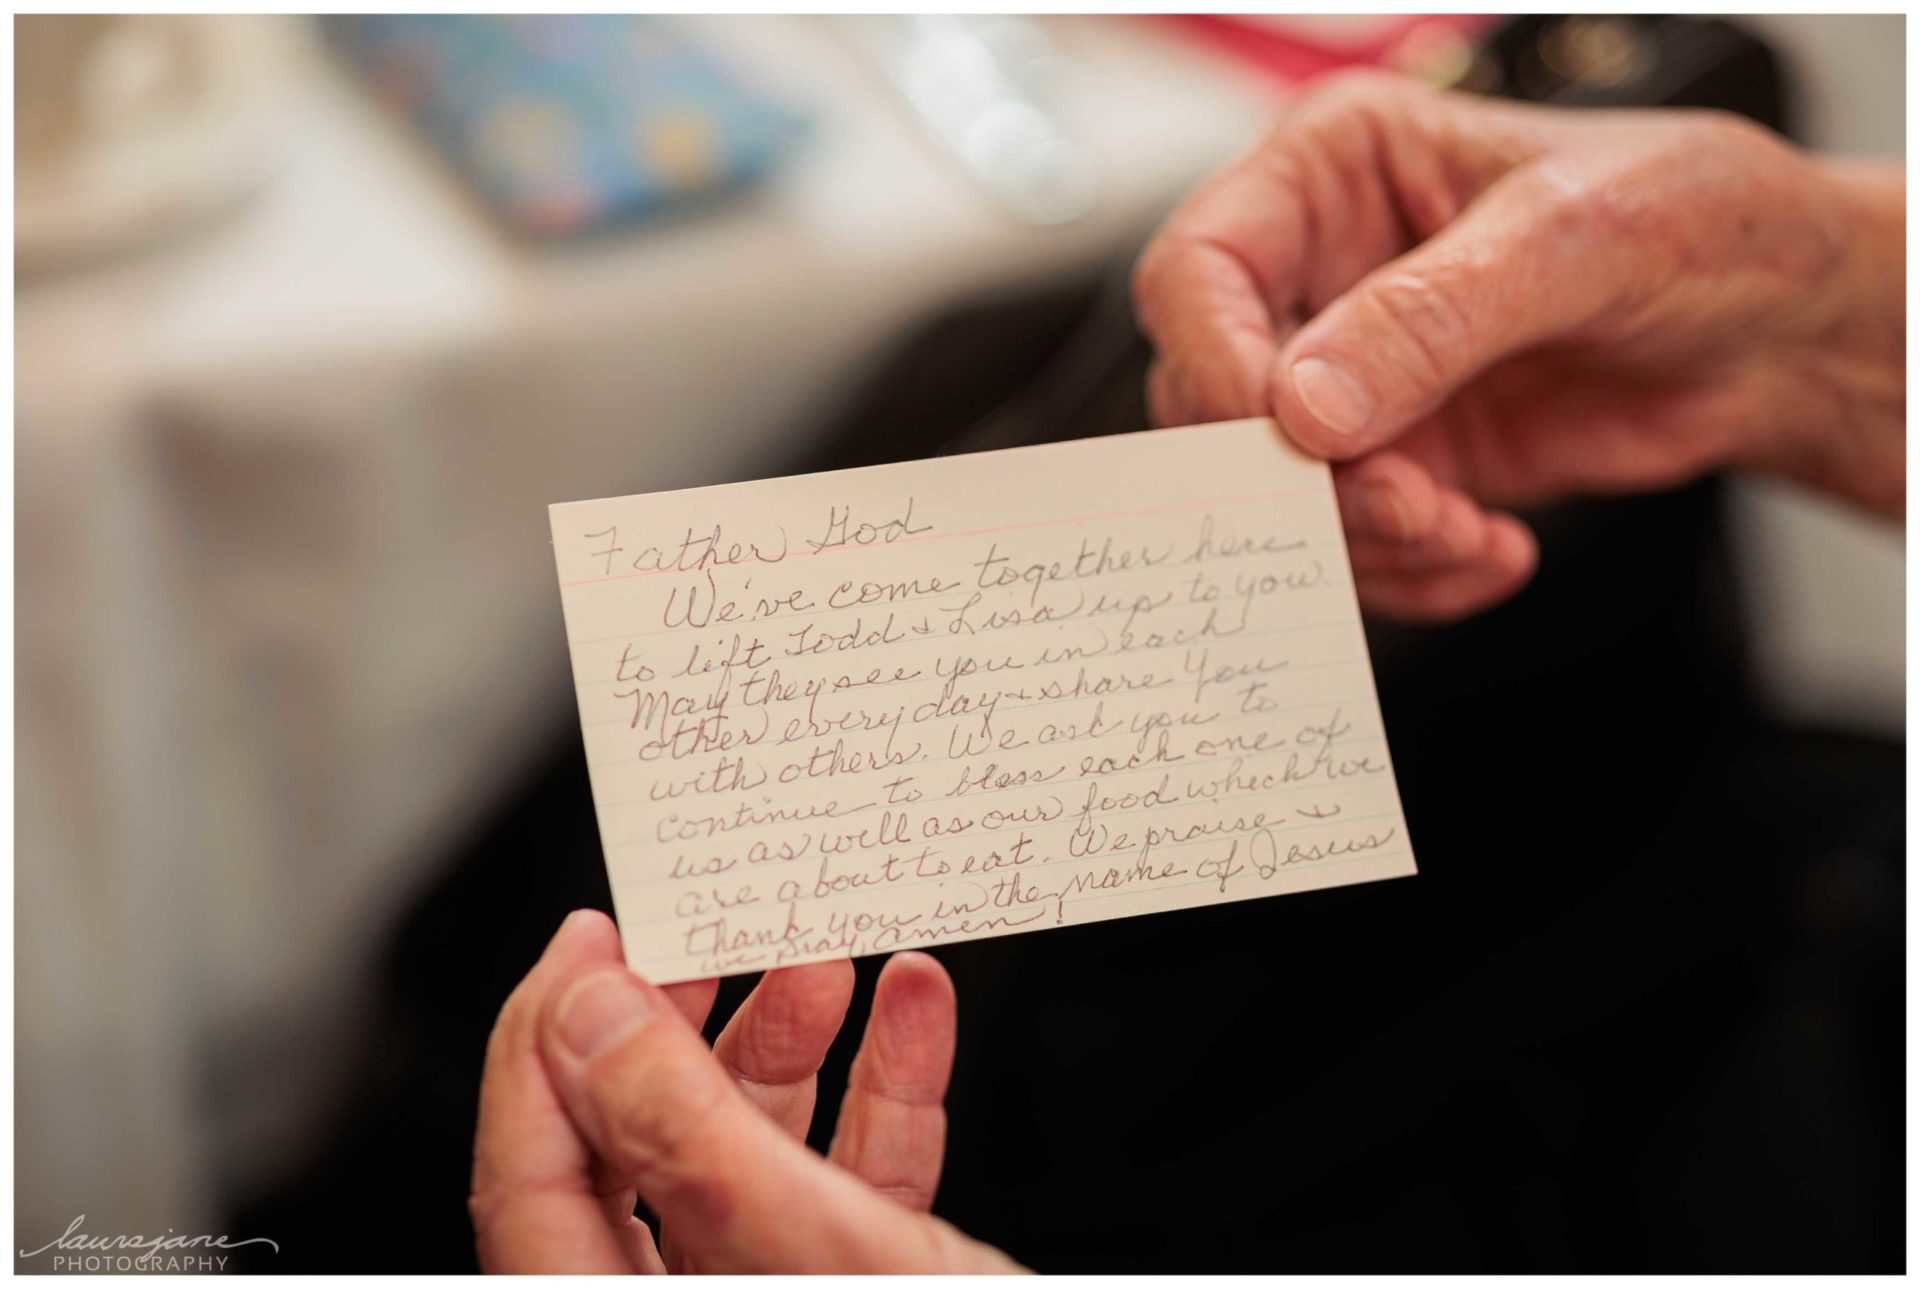 Father God
We've come together here
to lift Todd & Lisa up to you.
May they see you in each
other every day & share You
with others. We ask you to
continue to bless each one of
us as well as our food which we
are about to eat. We praise &
thank you in the name of Jesus
we pray, amen!
laurajane
PHOTOGRAPHY